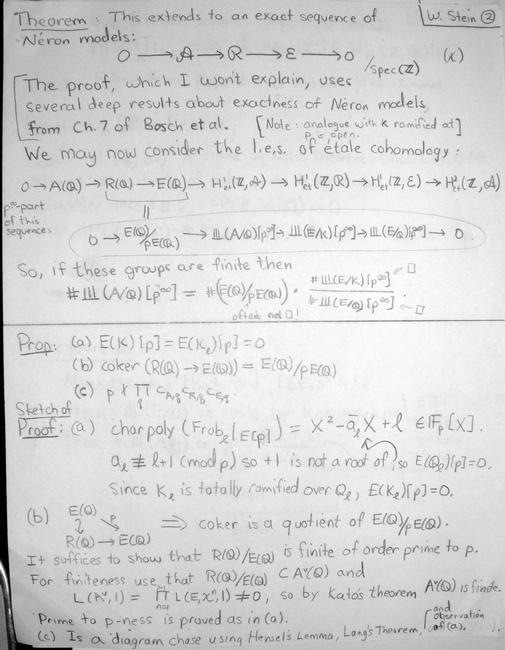 Theorem: This extends to an exact sequence of
W. Stein ②
Néron models:
0 → 𝒜 → ℛ → ℰ → 0 /Spec(ℤ) (*)
The proof, which I won't explain, uses
several deep results about exactness of Néron models,
from Ch. 7 of Bosch et al. [Note: analogue with K ramified at p is open.]
We may now consider the l.e.s. of étale cohomology:
0 → A(ℚ) → R(ℚ) → E(ℚ) → H¹ét(ℤ,𝒜) → H¹ét(ℤ,ℛ) → H¹ét(ℤ,ℰ) → H²ét(ℤ,𝒜)
p^∞-part
of this
sequence:
0 → E(ℚ)/pE(ℚ) → Ш(A/ℚ)[p^∞] → Ш(E/K)[p^∞] → Ш(E/ℚ)[p^∞] → 0
So, if these groups are finite then
#Ш(A/ℚ)[p^∞] = #(E(ℚ)/pE(ℚ)) · #Ш(E/K)[p^∞] / #Ш(E/ℚ)[p^∞] ← □ ← □
often not □!
Prop: (a) E(K)[p] = E(K_ℓ)[p] = 0
(b) coker(R(ℚ) → E(ℚ)) = E(ℚ)/pE(ℚ)
(c) p ∤ ∏_q c_{A,q} c_{R,q} c_{E,q}.
Sketch of
Proof: (a) charpoly(Frob_ℓ|E[p]) = X² − ā_ℓ X + ℓ ∈ 𝔽_p[X].
a_ℓ ≢ ℓ+1 (mod p) so +1 is not a root of, so E(ℚ_ℓ)[p]=0.
Since K_ℓ is totally ramified over ℚ_ℓ, E(K_ℓ)[p]=0.
(b) E(ℚ)
↓ ↘p ⟹ coker is a quotient of E(ℚ)/pE(ℚ).
R(ℚ) → E(ℚ)
It suffices to show that R(ℚ)/E(ℚ) is finite of order prime to p.
For finiteness use that R(ℚ)/E(ℚ) ⊂ A^∨(ℚ) and
L(A^∨,1) = ∏ L(E,χ^n,1) ≠ 0, so by Kato's theorem A^∨(ℚ) is finite.
Prime to p-ness is proved as in (a).
(c) Is a diagram chase using Hensel's Lemma, Lang's Theorem, and observation of (a).